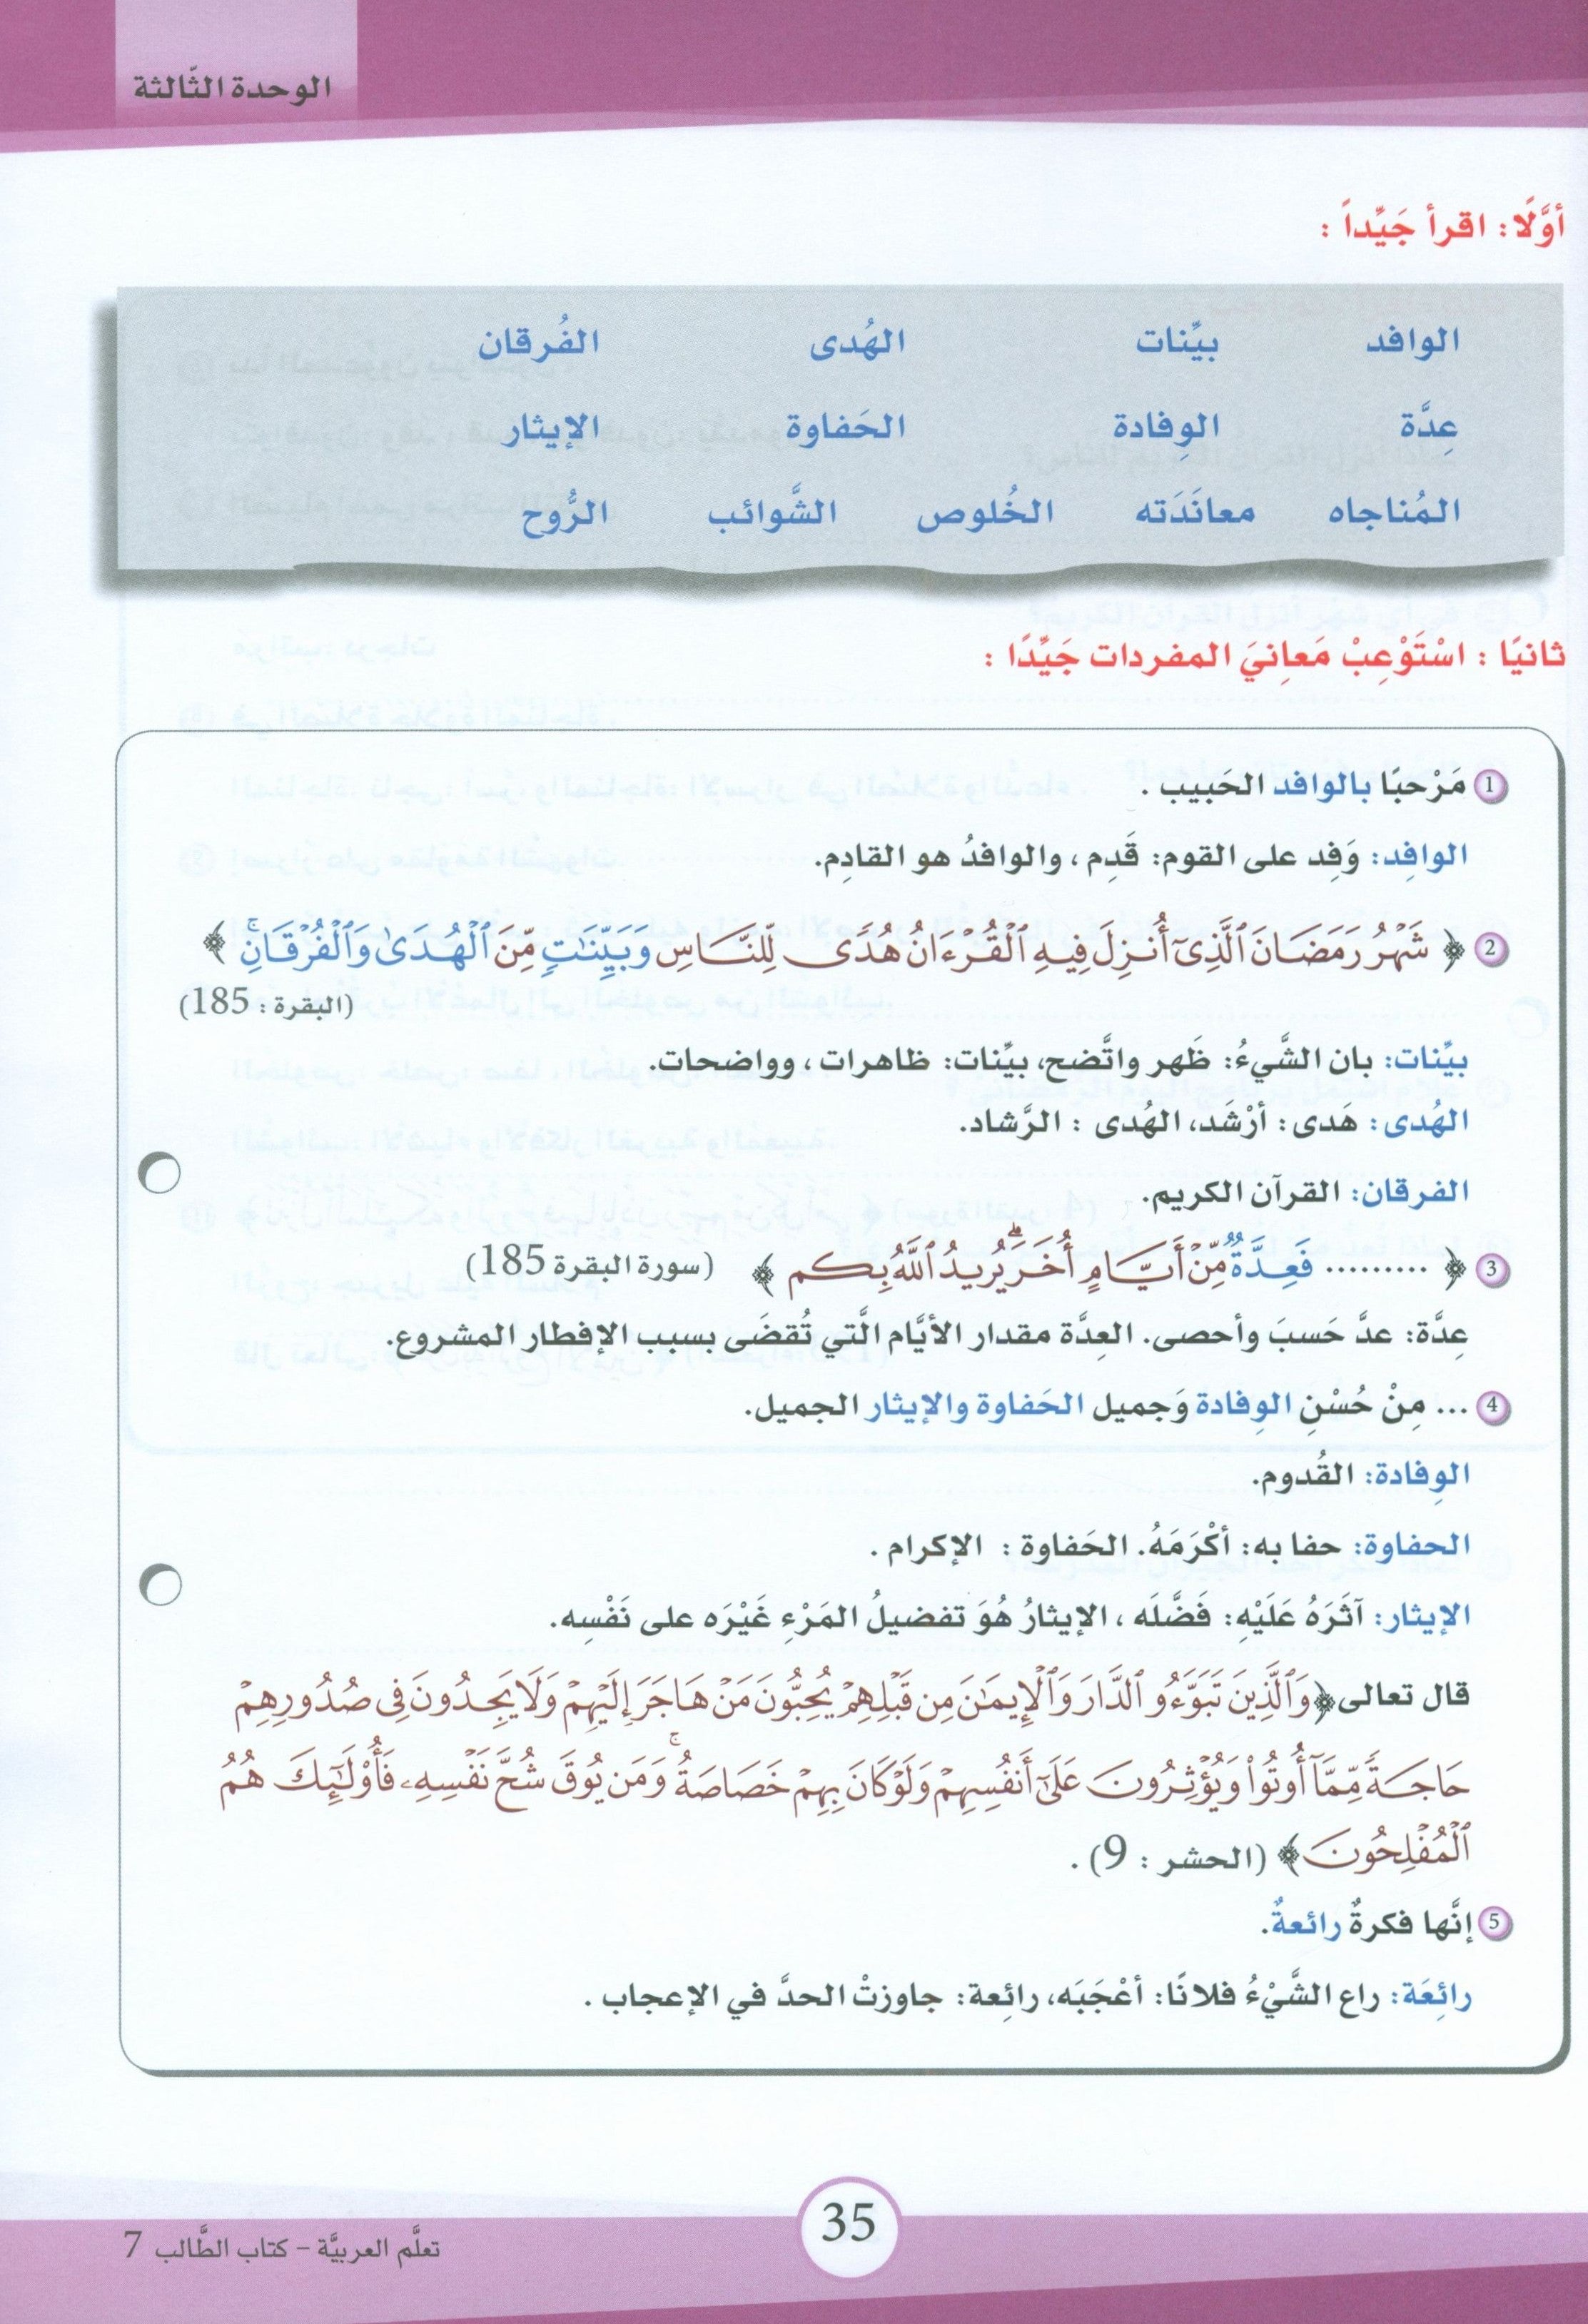 الوحدة الثّالثة
أوَّلًا: اقرأ جَيِّداً :
الوافد بيِّنات الهُدى الفُرقان
عِدَّة الوِفادة الحَفاوة الإيثار
المُناجاه معانَدَته الخُلوص الشَّوائب الرُّوح
ثانيًا : اسْتَوْعِبْ مَعانِيَ المفردات جَيِّدًا :
1 مَرْحبًا بالوافد الحَبيب .
الوافِد: وَفِد على القوم: قَدِم ، والوافدُ هو القادِم.
2 ﴿ شَهْرُ رَمَضَانَ ٱلَّذِىٓ أُنزِلَ فِيهِ ٱلْقُرْءَانُ هُدًى لِّلنَّاسِ وَبَيِّنَٰتٍ مِّنَ ٱلْهُدَىٰ وَٱلْفُرْقَانِ ۚ ﴾
(البقرة : 185)
بيِّنات: بان الشَّيءُ: ظَهر واتَّضح، بيِّنات: ظاهرات ، وواضحات.
الهُدى: هَدى: أرْشَد، الهُدى : الرَّشاد.
الفرقان: القرآن الكريم.
3 ﴿ ......... فَعِدَّةٌ مِّنْ أَيَّامٍ أُخَرَ ۗ يُرِيدُ ٱللَّهُ بِكم ﴾ (سورة البقرة 185)
عِدَّة: عدَّ حَسبَ وأحصى. العِدَّة مقدار الأيَّام الَّتي تُقضَى بسبب الإفطار المشروع.
4 ... مِنْ حُسْنِ الوِفادة وَجميل الحَفاوة والإيثار الجميل.
الوِفادة: القُدوم.
الحفاوة: حفا به: أكْرَمَهُ. الحَفاوة : الإكرام .
الإيثار: آثَرَهُ عَلَيْهِ: فَضَّلَه ، الإيثارُ هُوَ تفضيلُ المَرْءِ غَيْرَه على نَفْسِه.
قال تعالى ﴿وَٱلَّذِينَ تَبَوَّءُو ٱلدَّارَ وَٱلْإِيمَٰنَ مِن قَبْلِهِمْ يُحِبُّونَ مَنْ هَاجَرَ إِلَيْهِمْ وَلَا يَجِدُونَ فِى صُدُورِهِمْ
حَاجَةً مِّمَّآ أُوتُواْ وَيُؤْثِرُونَ عَلَىٰٓ أَنفُسِهِمْ وَلَوْ كَانَ بِهِمْ خَصَاصَةٌ ۚ وَمَن يُوقَ شُحَّ نَفْسِهِۦ فَأُوْلَٰٓئِكَ هُمُ
ٱلْمُفْلِحُونَ﴾ (الحشر : 9) .
5 إنَّها فكرةٌ رائعةٌ.
رائِعَة: راع الشَّيْءُ فلانًا: أعْجَبَه، رائِعة: جاوزتْ الحدَّ في الإعجاب .
35
تعلَّم العربيَّة - كتاب الطَّالب 7